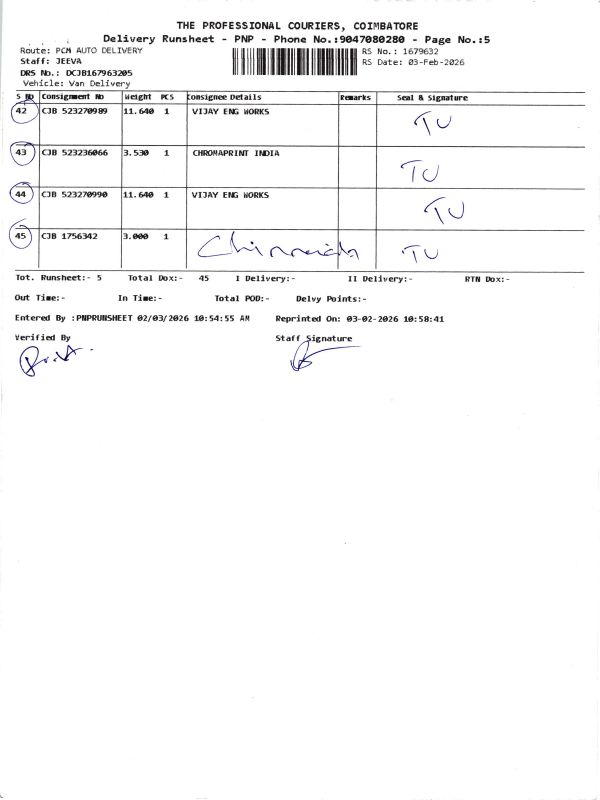 THE PROFESSIONAL COURIERS, COIMBATORE
Delivery Runsheet - PNP - Phone No.:9047080280 - Page No.:5
Route: PCM AUTO DELIVERY
RS No.: 1679632
Staff: JEEVA
RS Date: 03-Feb-2026
DRS No.: DCJB167963205
Vehicle: Van Delivery
S No Consignment No Weight PCS Consignee Details Remarks Seal & Signature
42 CJB 523270989 11.640 1 VIJAY ENG WORKS TU
43 CJB 523236066 3.530 1 CHROMAPRINT INDIA TU
44 CJB 523270990 11.640 1 VIJAY ENG WORKS TU
45 CJB 1756342 3.000 1 TU
Tot. Runsheet:- 5 Total Dox:- 45 I Delivery:- II Delivery:- RTN Dox:-
Out Time:- In Time:- Total POD:- Delvy Points:-
Entered By :PNPRUNSHEET 02/03/2026 10:54:55 AM Reprinted On: 03-02-2026 10:58:41
Verified By Staff Signature